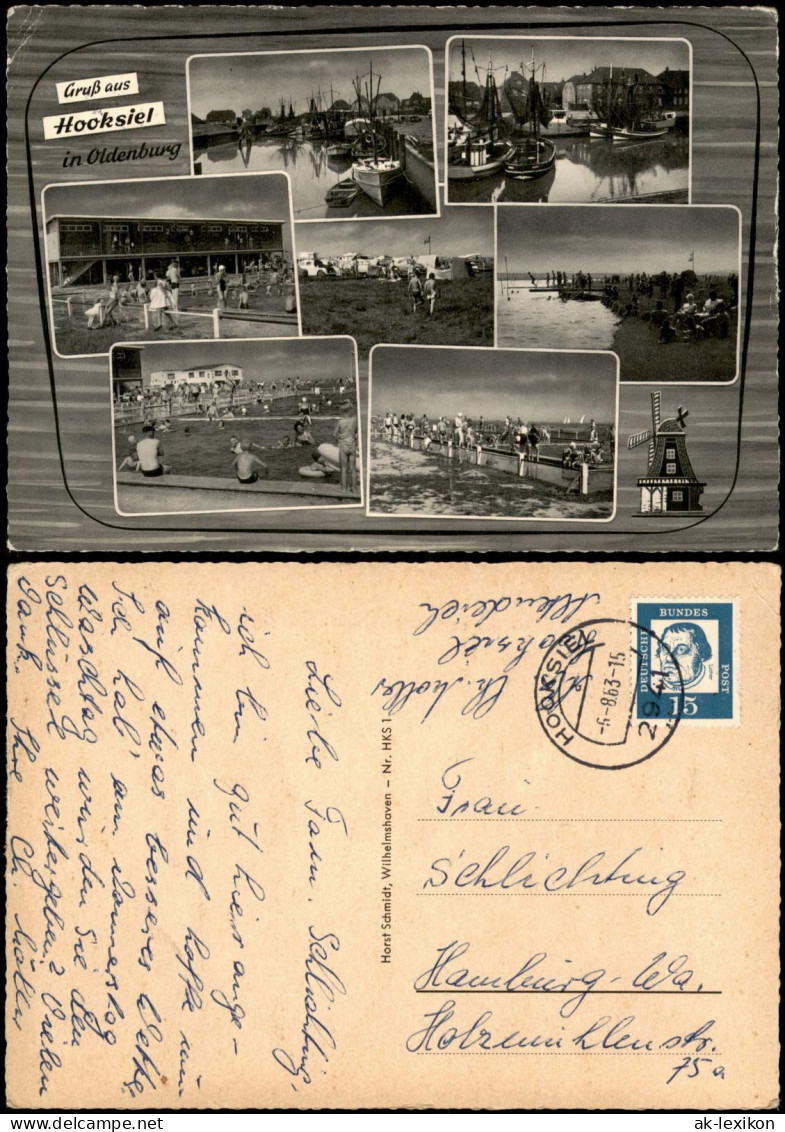 Gruß aus
Hooksiel
in Oldenburg
Liebe Fam. Schlichting,
ich bin gut hier ange-
kommen und hoffe nun
auf etwas besseres Wetter
Ich hab' am Donnerstag
Waschtag würden Sie den
Schlüssel weitergeben? Vielen
Dank. Ihre Ch. Möller
Horst Schmidt, Wilhelmshaven – Nr. HKS 1
Ch. Möller
Hooksiel
DEUTSCHE BUNDES POST
Luther
15
HOOKSIEL
-6.-8.63-15
2941
Frau
Schlichting
Hamburg-Wa.
Holzmühlenstr.
75a
ak-lexikon
www.ak-lexikon.com